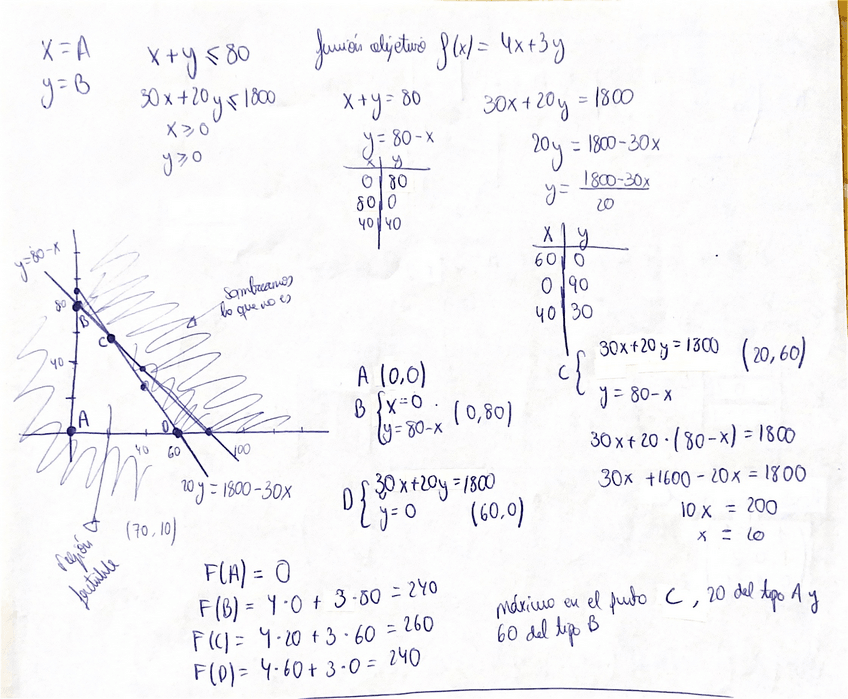 x = A
y = B
x + y ≤ 80
30x + 20y ≤ 1800
x ≥ 0
y ≥ 0
función objetivo f(x) = 4x + 3y
x + y = 80
y = 80 - x
x | y
0 | 80
80 | 0
40 | 40
30x + 20y = 1800
20y = 1800 - 30x
y = (1800 - 30x)/20
x | y
60 | 0
0 | 90
40 | 30
y = 80 - x
sombreamos
lo que no es
80
B
C
40
A
D
40
60
100
20y = 1800 - 30x
(70, 10)
Región
factible
A (0,0)
B { x = 0
y = 80 - x (0, 80)
D { 30x + 20y = 1800
y = 0 (60, 0)
C { 30x + 20y = 1800 (20, 60)
y = 80 - x
30x + 20 · (80 - x) = 1800
30x + 1600 - 20x = 1800
10x = 200
x = 20
F(A) = 0
F(B) = 4 · 0 + 3 · 80 = 240
F(C) = 4 · 20 + 3 · 60 = 260
F(D) = 4 · 60 + 3 · 0 = 240
máximo en el punto C, 20 del tipo A y
60 del tipo B